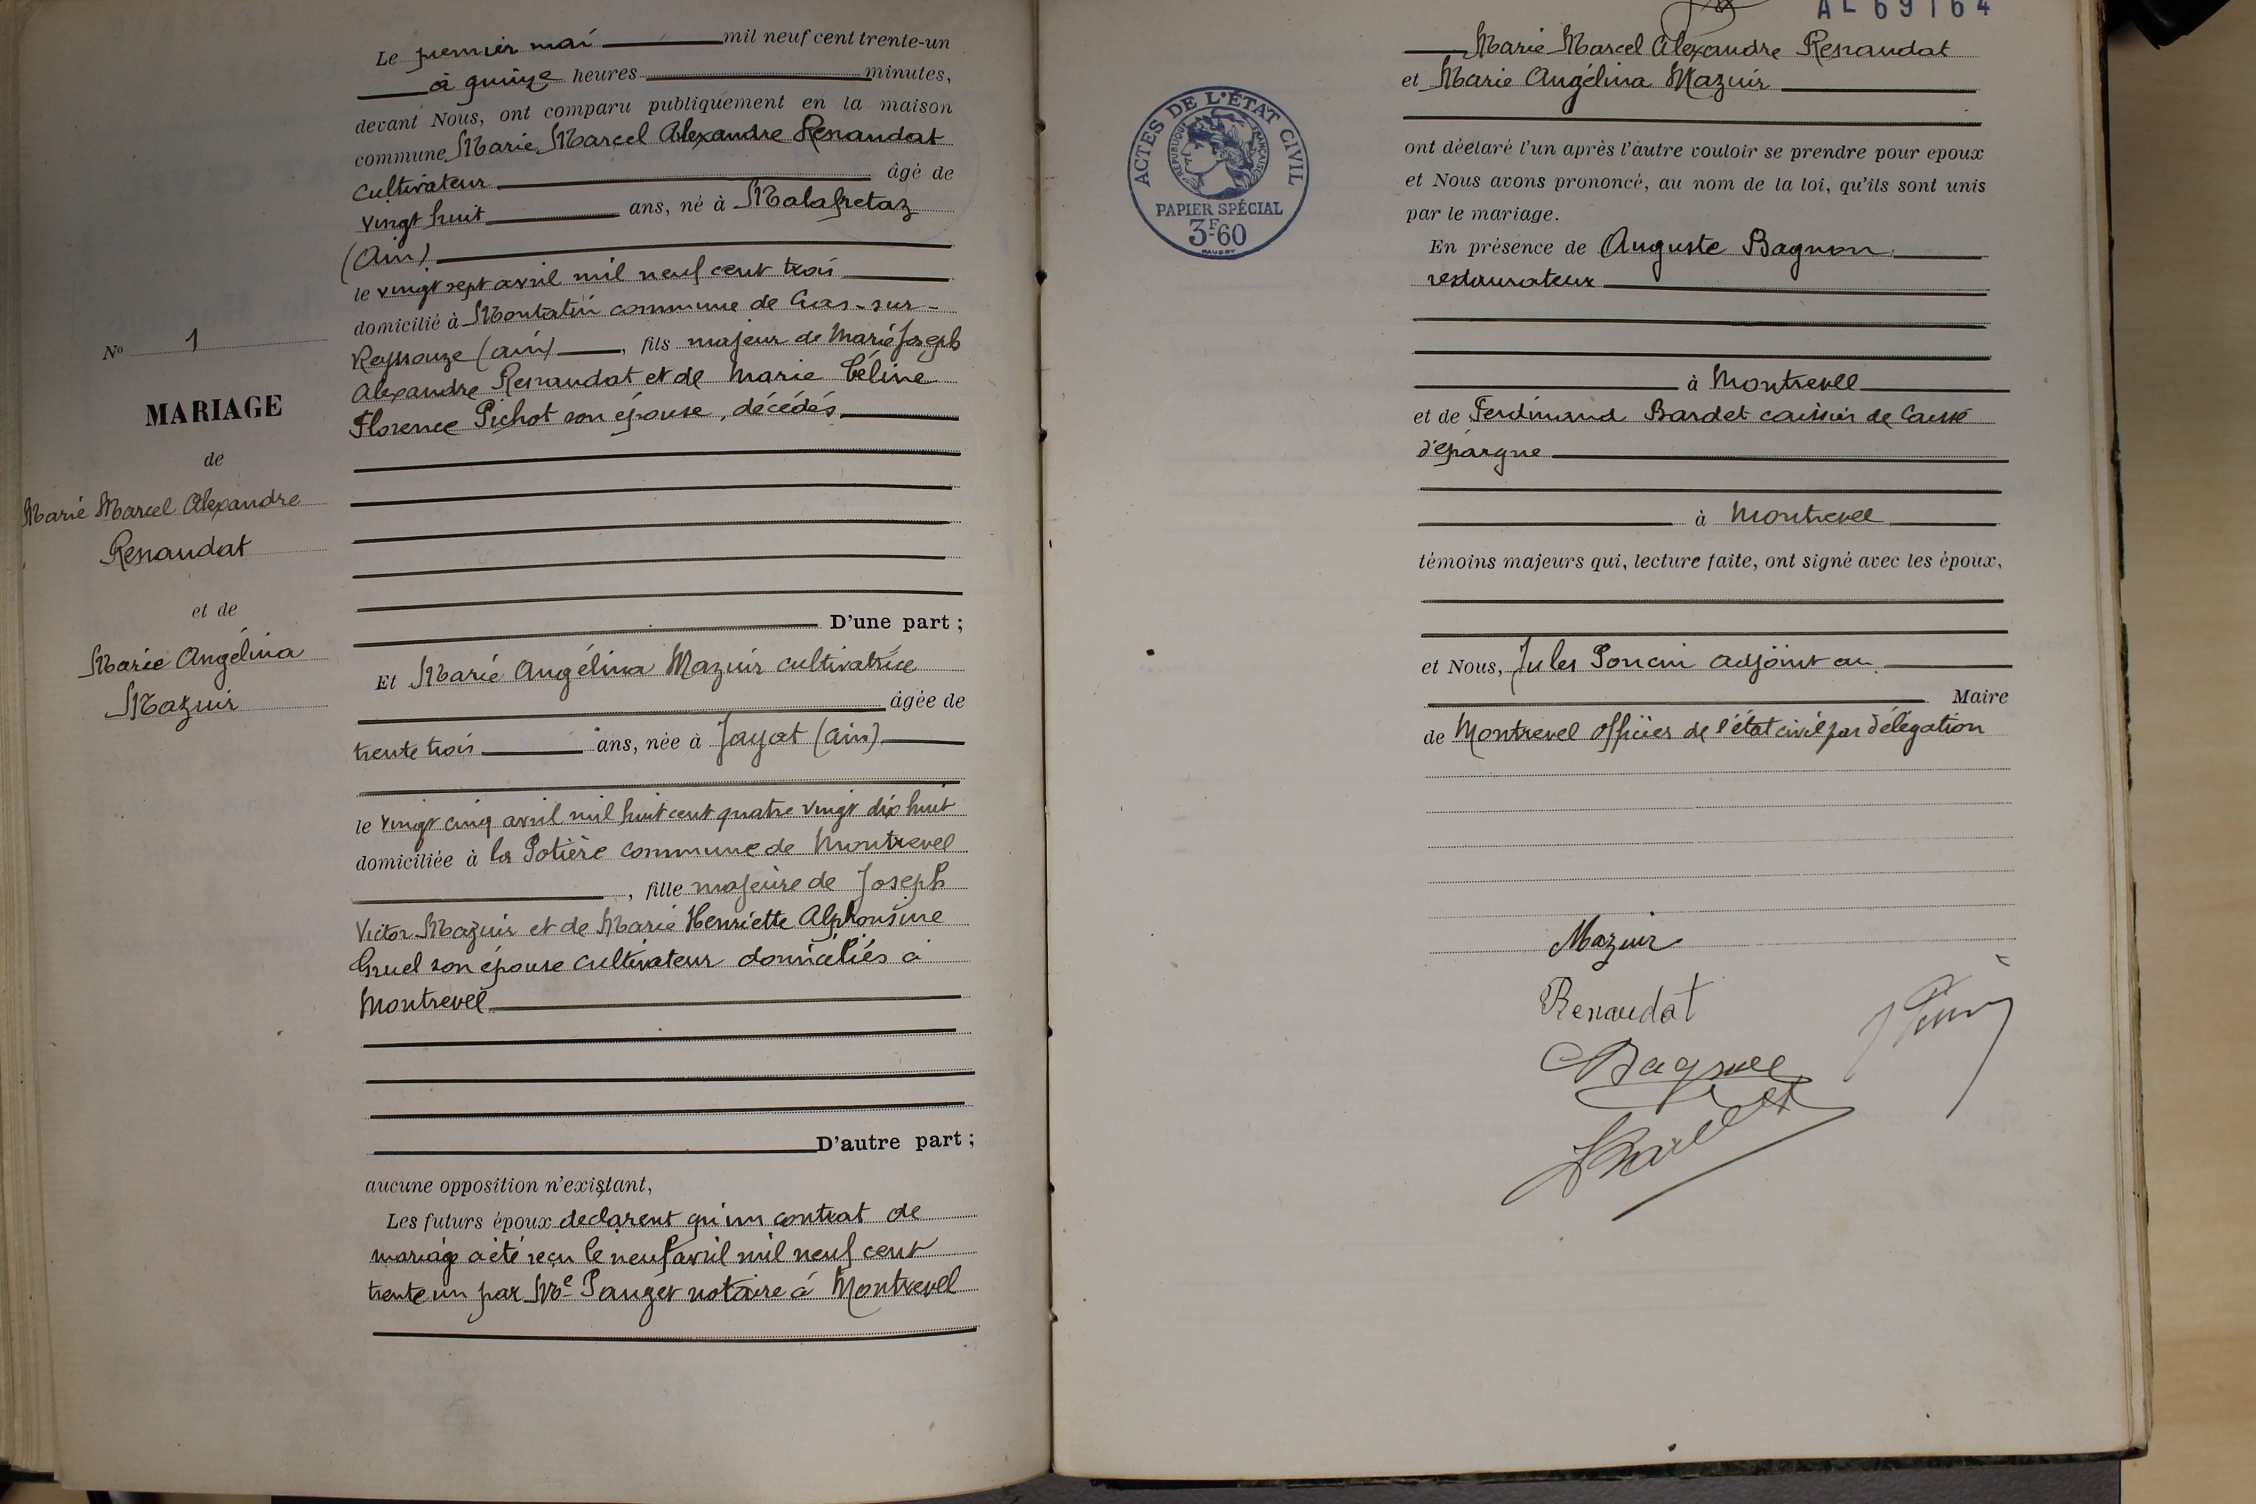 Le premier mai mil neuf cent trente-un
à quinze heures minutes,
devant Nous, ont comparu publiquement en la maison
commune Marie Marcel Alexandre Renaudat
cultivateur âgé de
vingt huit ans, né à Malafretaz
(Ain)
le vingt sept avril mil neuf cent trois
domicilié à Montatin commune de Cras-sur-
Reyssouze (ain), fils majeur de Marie Joseph
Alexandre Renaudat et de Marie Céline
Florence Pichot son épouse, décédés
D'une part ;
Et Marie Angélina Mazuir cultivatrice
âgée de
trente trois ans, née à Jayat (ain)
le vingt cinq avril mil huit cent quatre vingt dix huit
domiciliée à la Potière commune de Montrevel
, fille majeure de Joseph
Victor Mazuir et de Marie Henriette Alphonsine
Gruel son épouse cultivateur domiciliés à
Montrevel
D'autre part ;
aucune opposition n'existant,
Les futurs époux declarent qu'un contrat de
mariage a été reçu le neuf avril mil neuf cent
trente un par Me Pauget notaire à Montrevel
No 1
MARIAGE
de
Marie Marcel Alexandre
Renaudat
et de
Marie Angélina
Mazuir
AL 69164
Marie Marcel Alexandre Renaudat
et Marie Angélina Mazuir
ACTES DE L'ÉTAT CIVIL
RÉPUBLIQUE FRANÇAISE
PAPIER SPÉCIAL
3F60
ont déclaré l'un après l'autre vouloir se prendre pour epoux
et Nous avons prononcé, au nom de la loi, qu'ils sont unis
par le mariage.
En présence de Auguste Bagnon
restaurateur
à Montrevel
et de Ferdinand Bardet caissier de Caisse
d'épargne
à Montrevel
témoins majeurs qui, lecture faite, ont signé avec les époux,
et Nous, Jules Poncin adjoint au
Maire
de Montrevel officier de l'état civil par délégation
Mazuir
Renaudat